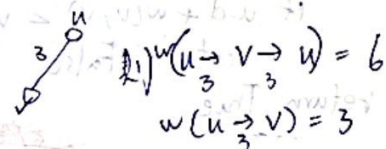 u
3
w(u →3 v →3 u) = 6
w(u →3 v) = 3